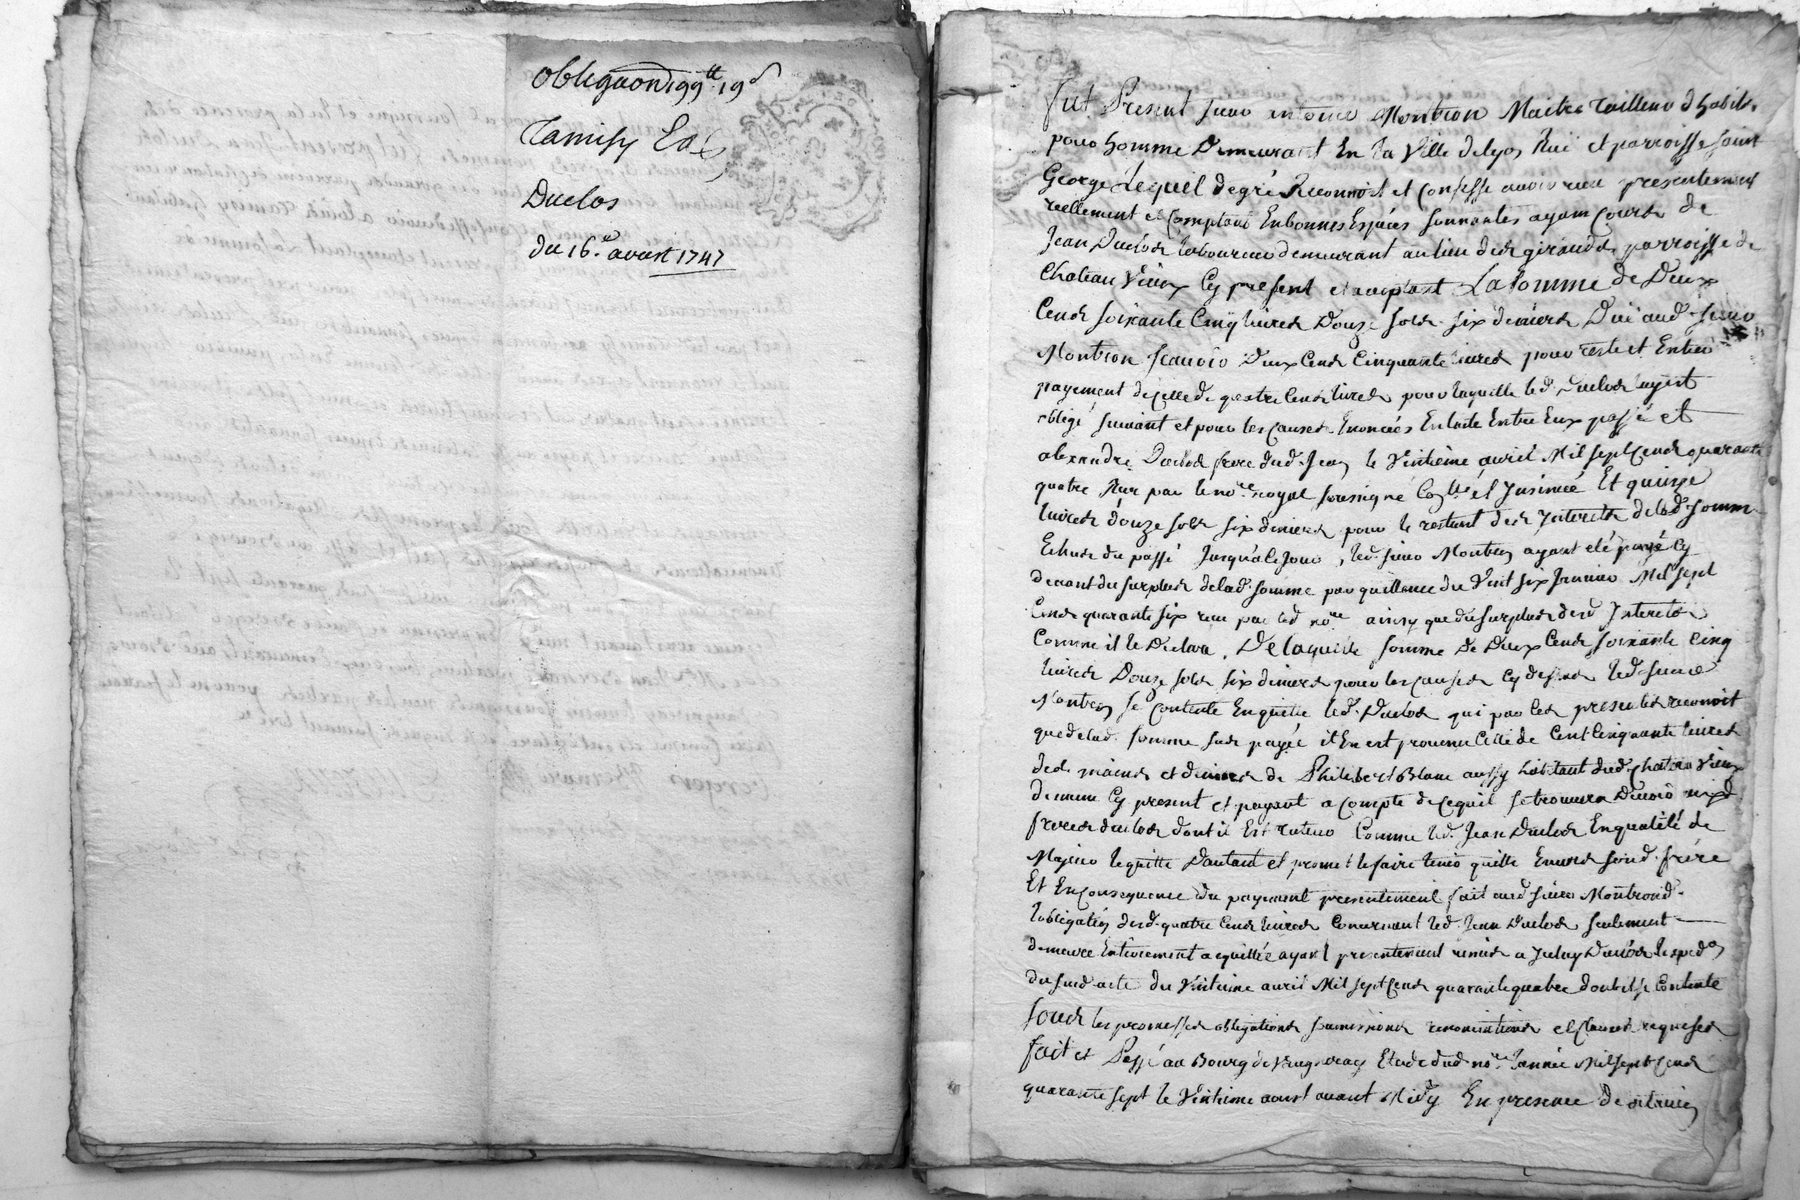 obligaon 199tt 19s
Tamisy
Duclos
du 16e. aoust 1747
fut Present sieur antoine Montron Maitre Tailleur d'habits
pour homme Demeurant En la Ville de lyon Ruë et parroisse saint
George Lequel de gré Reconnoist et Confesse avoir reçu presentement
reellement et Comptant En bonnes Espéces sonnantes ayant Cours de
Jean Duclos laboureur demeurant au lieu des giraudes parroisse de
Chateau Vieux Cy present et acceptant La somme de Deux
Cents soixante Cinq livres Douze sols six deniers Dûe aud. sieur
Montron scavoir Deux Cents Cinquante livres pour reste et Entier
payement de Celle de quatre Cents livres pour laquelle led. Duclos s'ayant
obligé suivant et pour les causes Enoncées En l'acte Entre Eux passé et
alexandre Duclos frere dud. Jean le Vintième avril Mil sept Cents quarante
quatre Reçu par le nore. royal soussigné Collé et Insinué Et quinze
livres douze sols six deniers pour le restant des Interests de lad. somme
Echus du passé Jusqu'a ce Jour, led. sieur Montron ayant eté payé Cy
devant du surplus de lad. somme par quittance du Vint six Janvier Mil sept
Cents quarante six reçue par led. nore ainsy que du surplus desd. Interets
Comme il le Declara, De laquelle somme de Deux Cents soixante Cinq
livres Douze sols six deniers pour les causes Cy dessus led. sieur
Montron se Contente En quitte led. Duclos qui par ces presentes reconnoit
que de lad. somme sus payée il En est provenu Celle de Cent Cinquante livres
des mains et deniers de Philibert Blanc aussy habitant dud. Chateau Vieux
Cy present et payant a compte de ce qu'il se trouvera Devoir auxd.
freres duclos dont il Est Comme led. Jean Duclos En qualité de
Majeur le quitte D'autant et promet le faire tenir quitte Envers sond. frére
Et En Consequence du payement presentement fait aud. sieur Montrond.
l'obligation desd. quatre Cents livres Concernant led. Jean Duclos seulement
demeure Entierement acquittée ayant presentement remis a Duclos l'expedon
du susd. acte du Vintieme avril Mil sept Cents quarante quatre dont il se Contente
sous les promesses obligations soumissions renonciations et Clauses requises
fait et Passé au Bourg de Vaugneray Etude dud. nore. l'année Mil sept Cents
quarante sept le Vintieme aoust avant Midy En presence de